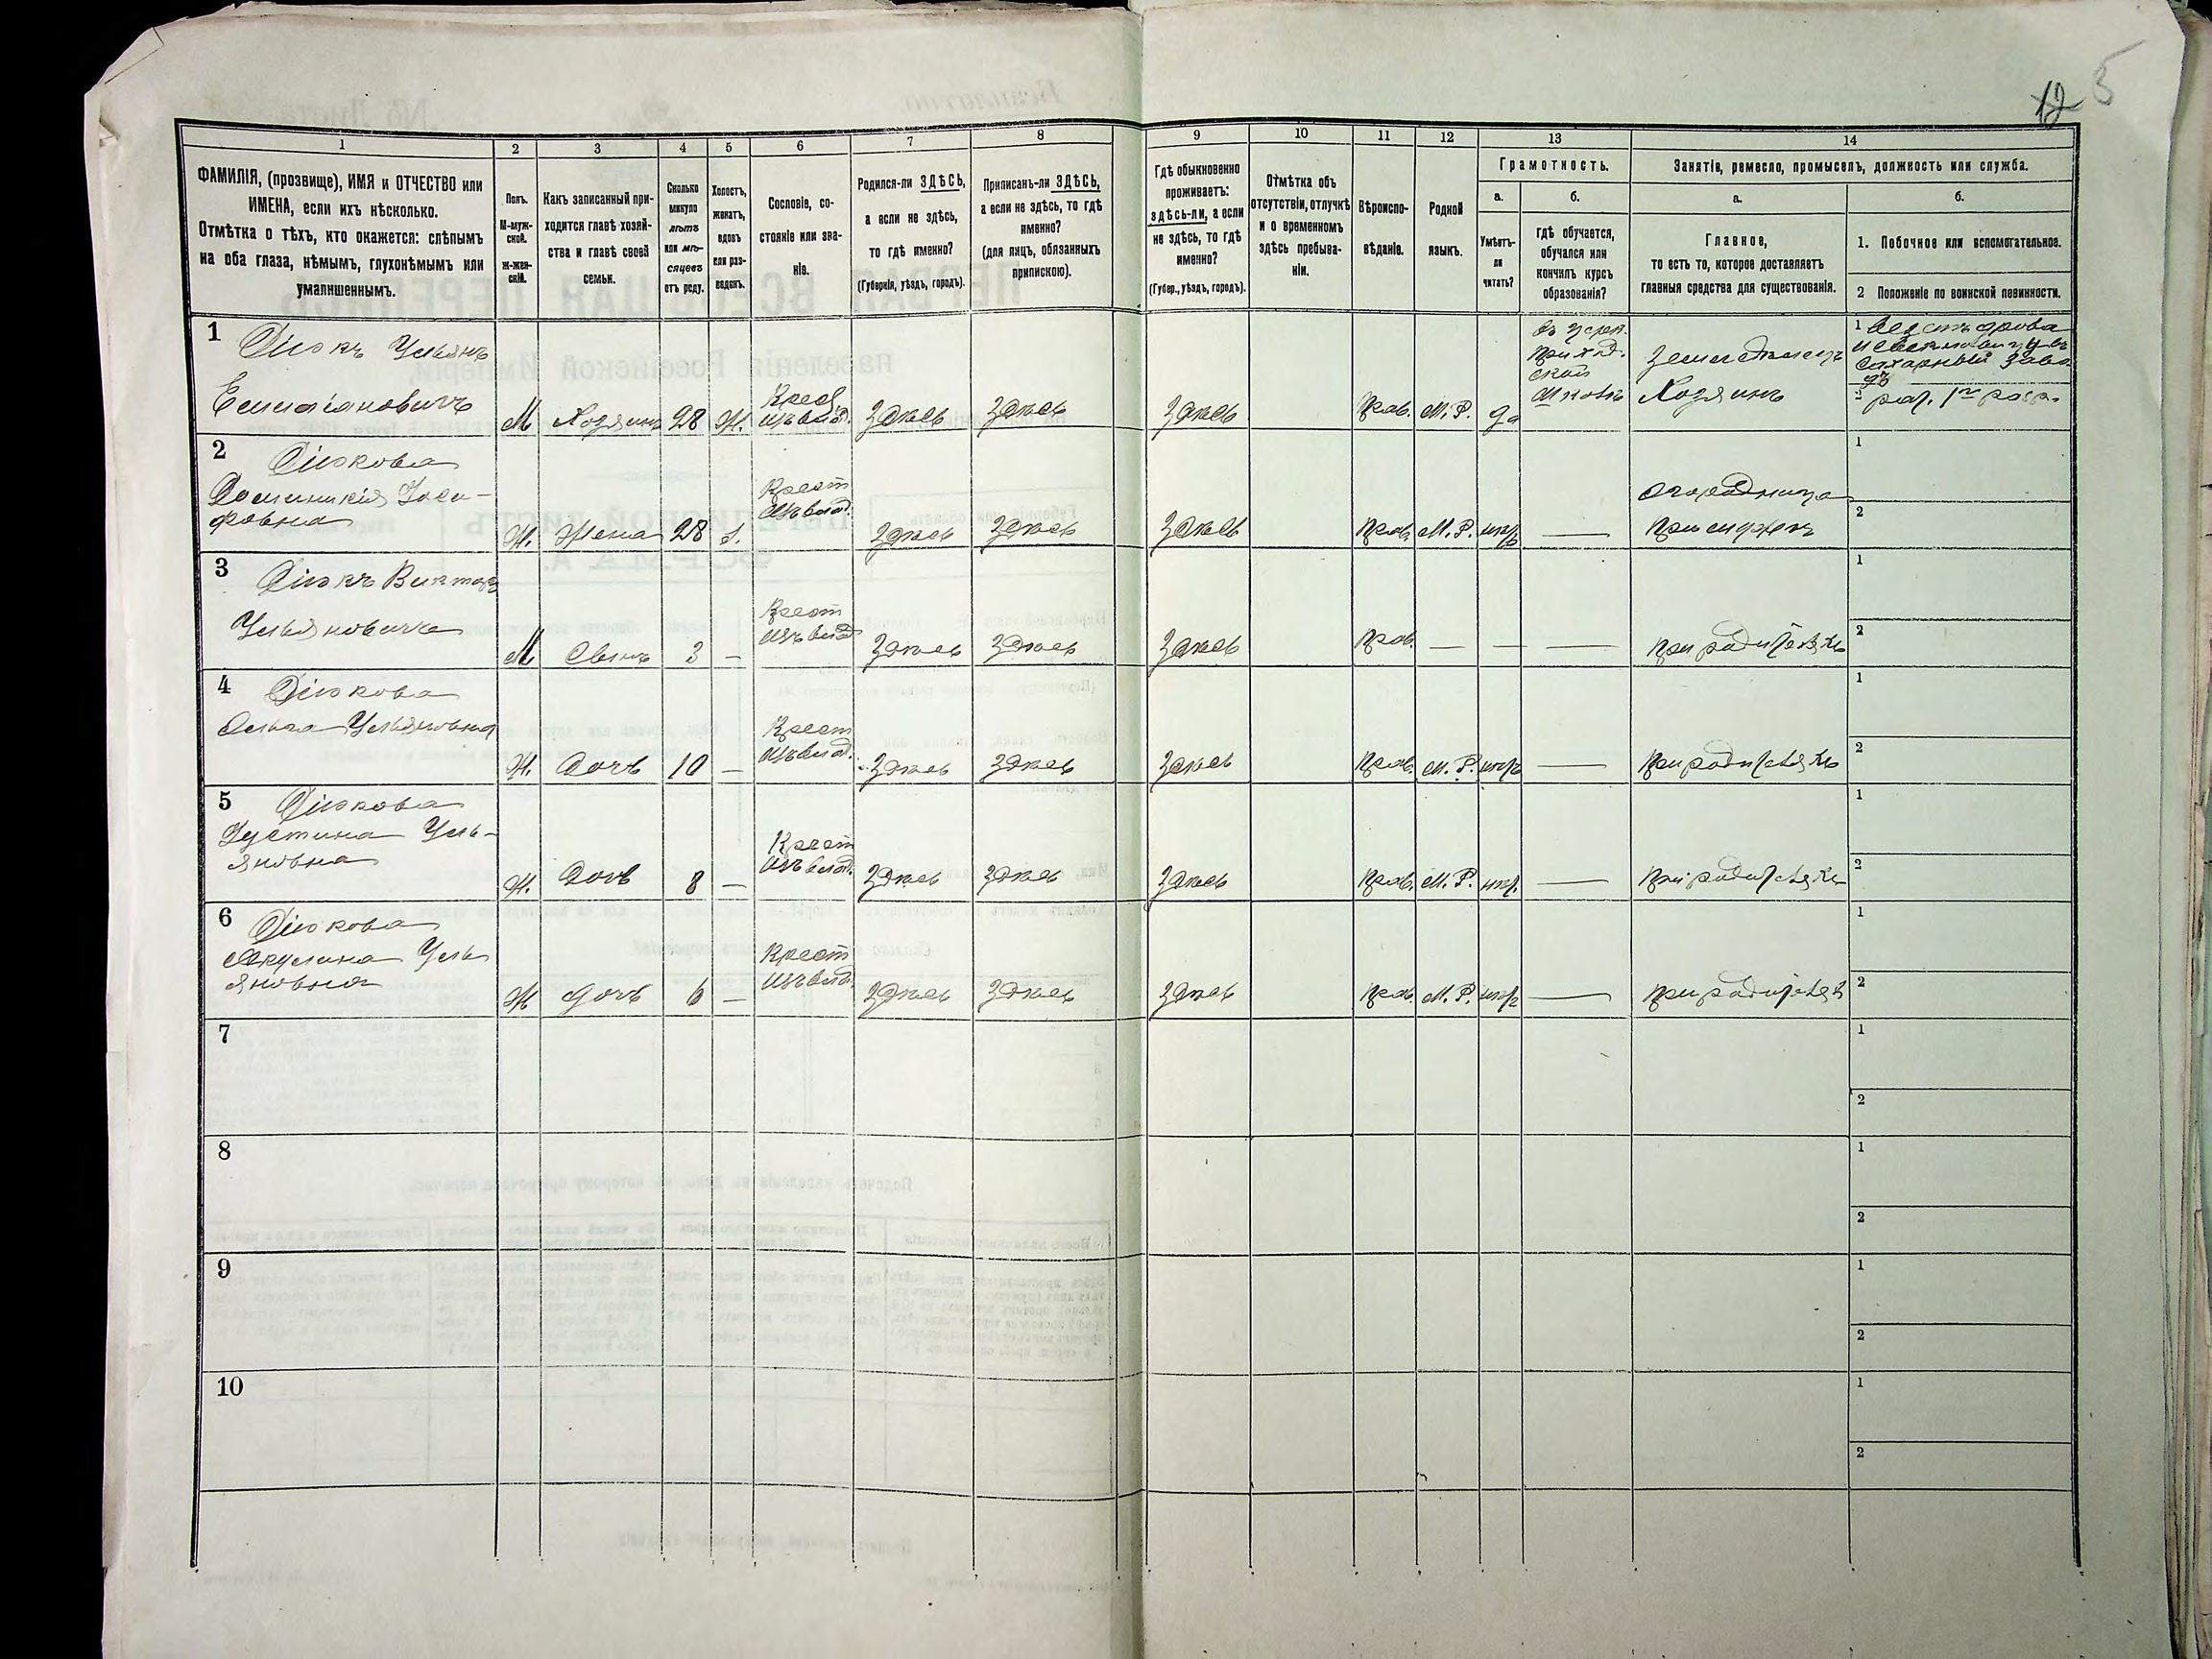 12 5
1 2 3 4 5 6 7 8 9 10 11 12 13 14
ФАМИЛІЯ, (прозвище), ИМЯ и ОТЧЕСТВО или
ИМЕНА, если ихъ нѣсколько.
Отмѣтка о тѣхъ, кто окажется: слѣпымъ
на оба глаза, нѣмымъ, глухонѣмымъ или
умалишеннымъ.
Полъ.
М-муж-
ской.
Ж-жен-
скій.
Какъ записанный при-
ходится главѣ хозяй-
ства и главѣ своей
семьи.
Сколько
минуло
лѣтъ
или мѣ-
сяцевъ
отъ роду.
Холостъ,
женатъ,
вдовъ
или раз-
веденъ.
Сословіе, со-
стояніе или зва-
ніе.
Родился-ли ЗДѢСЬ,
а если не здѣсь,
то гдѣ именно?
(Губернія, уѣздъ, городъ).
Приписанъ-ли ЗДѢСЬ,
а если не здѣсь, то гдѣ
именно?
(для лицъ, обязанныхъ
припискою).
Гдѣ обыкновенно
проживаетъ:
здѣсь-ли, а если
не здѣсь, то гдѣ
именно?
(Губер., уѣздъ, городъ).
Отмѣтка объ
отсутствіи, отлучкѣ
и о временномъ
здѣсь пребыва-
ніи.
Вѣроиспо-
вѣданіе.
Родной
языкъ.
Грамотность.
а. б.
Умѣетъ-
ли
читать?
гдѣ обучается,
обучался или
кончилъ курсъ
образованія?
Занятія, ремесло, промыселъ, должность или служба.
а. б.
Главное,
то есть то, которое доставляетъ
главныя средства для существованія.
1. Побочное или вспомогательное.
2 Положеніе по воинской повинности.
1 Дiюкъ Ульянъ
Емельяновичъ
М Хозяинъ 28 Ж. Крест. изъ влад. здѣсь здѣсь здѣсь Прав. М. Р. да
приход.
ской
школѣ
Земледѣлецъ
Хозяинъ
1
сахарный заво
дъ
2
2 Дiюкова
Доминикія Іоси-
фовна
Ж. Жена 28 Крест изъ влад. здѣсь здѣсь здѣсь Прав. М. Р. —
Огородница
при мужѣ
1
2
3 Дiюкъ Викторъ
Ульяновичъ
М Сынъ 3 — Крест изъ влад здѣсь здѣсь здѣсь Прав. — — —
1
2
4 Дiюкова
Ольга Ульяновна
Ж. Дочь 10 — Крест изъ влад. здѣсь здѣсь здѣсь Прав. М. Р. —
1
2
5 Дiюкова
Іустина Уль-
яновна
Ж. Дочь 8 — Крест изъ влад. здѣсь здѣсь здѣсь Прав. М. Р. —
1
2
6 Дiюкова
Акулина Уль
яновна
Ж Дочь 6 — Крест изъ влад. здѣсь здѣсь здѣсь Прав. М. Р. —
1
2
7
1
2
8
1
2
9
1
2
10
1
2